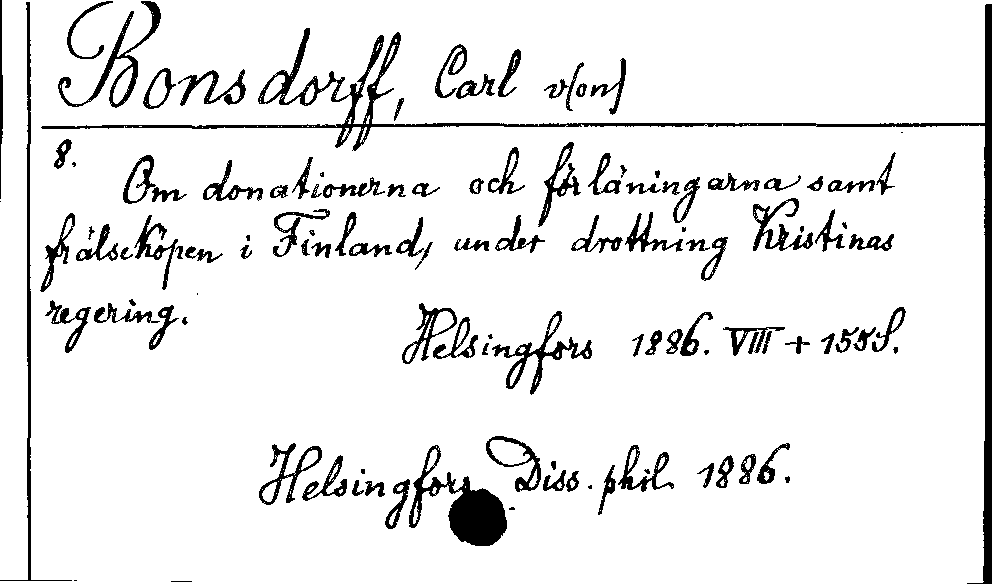 Bonsdorff, Carl v(on)
8.
Om donationerna och förläningarna samt
frälseköpen i Finland, under drottning Kristinas
regering.
Helsingfors 1886. VIII + 155 S.
Helsingfors, Diss. phil. 1886.